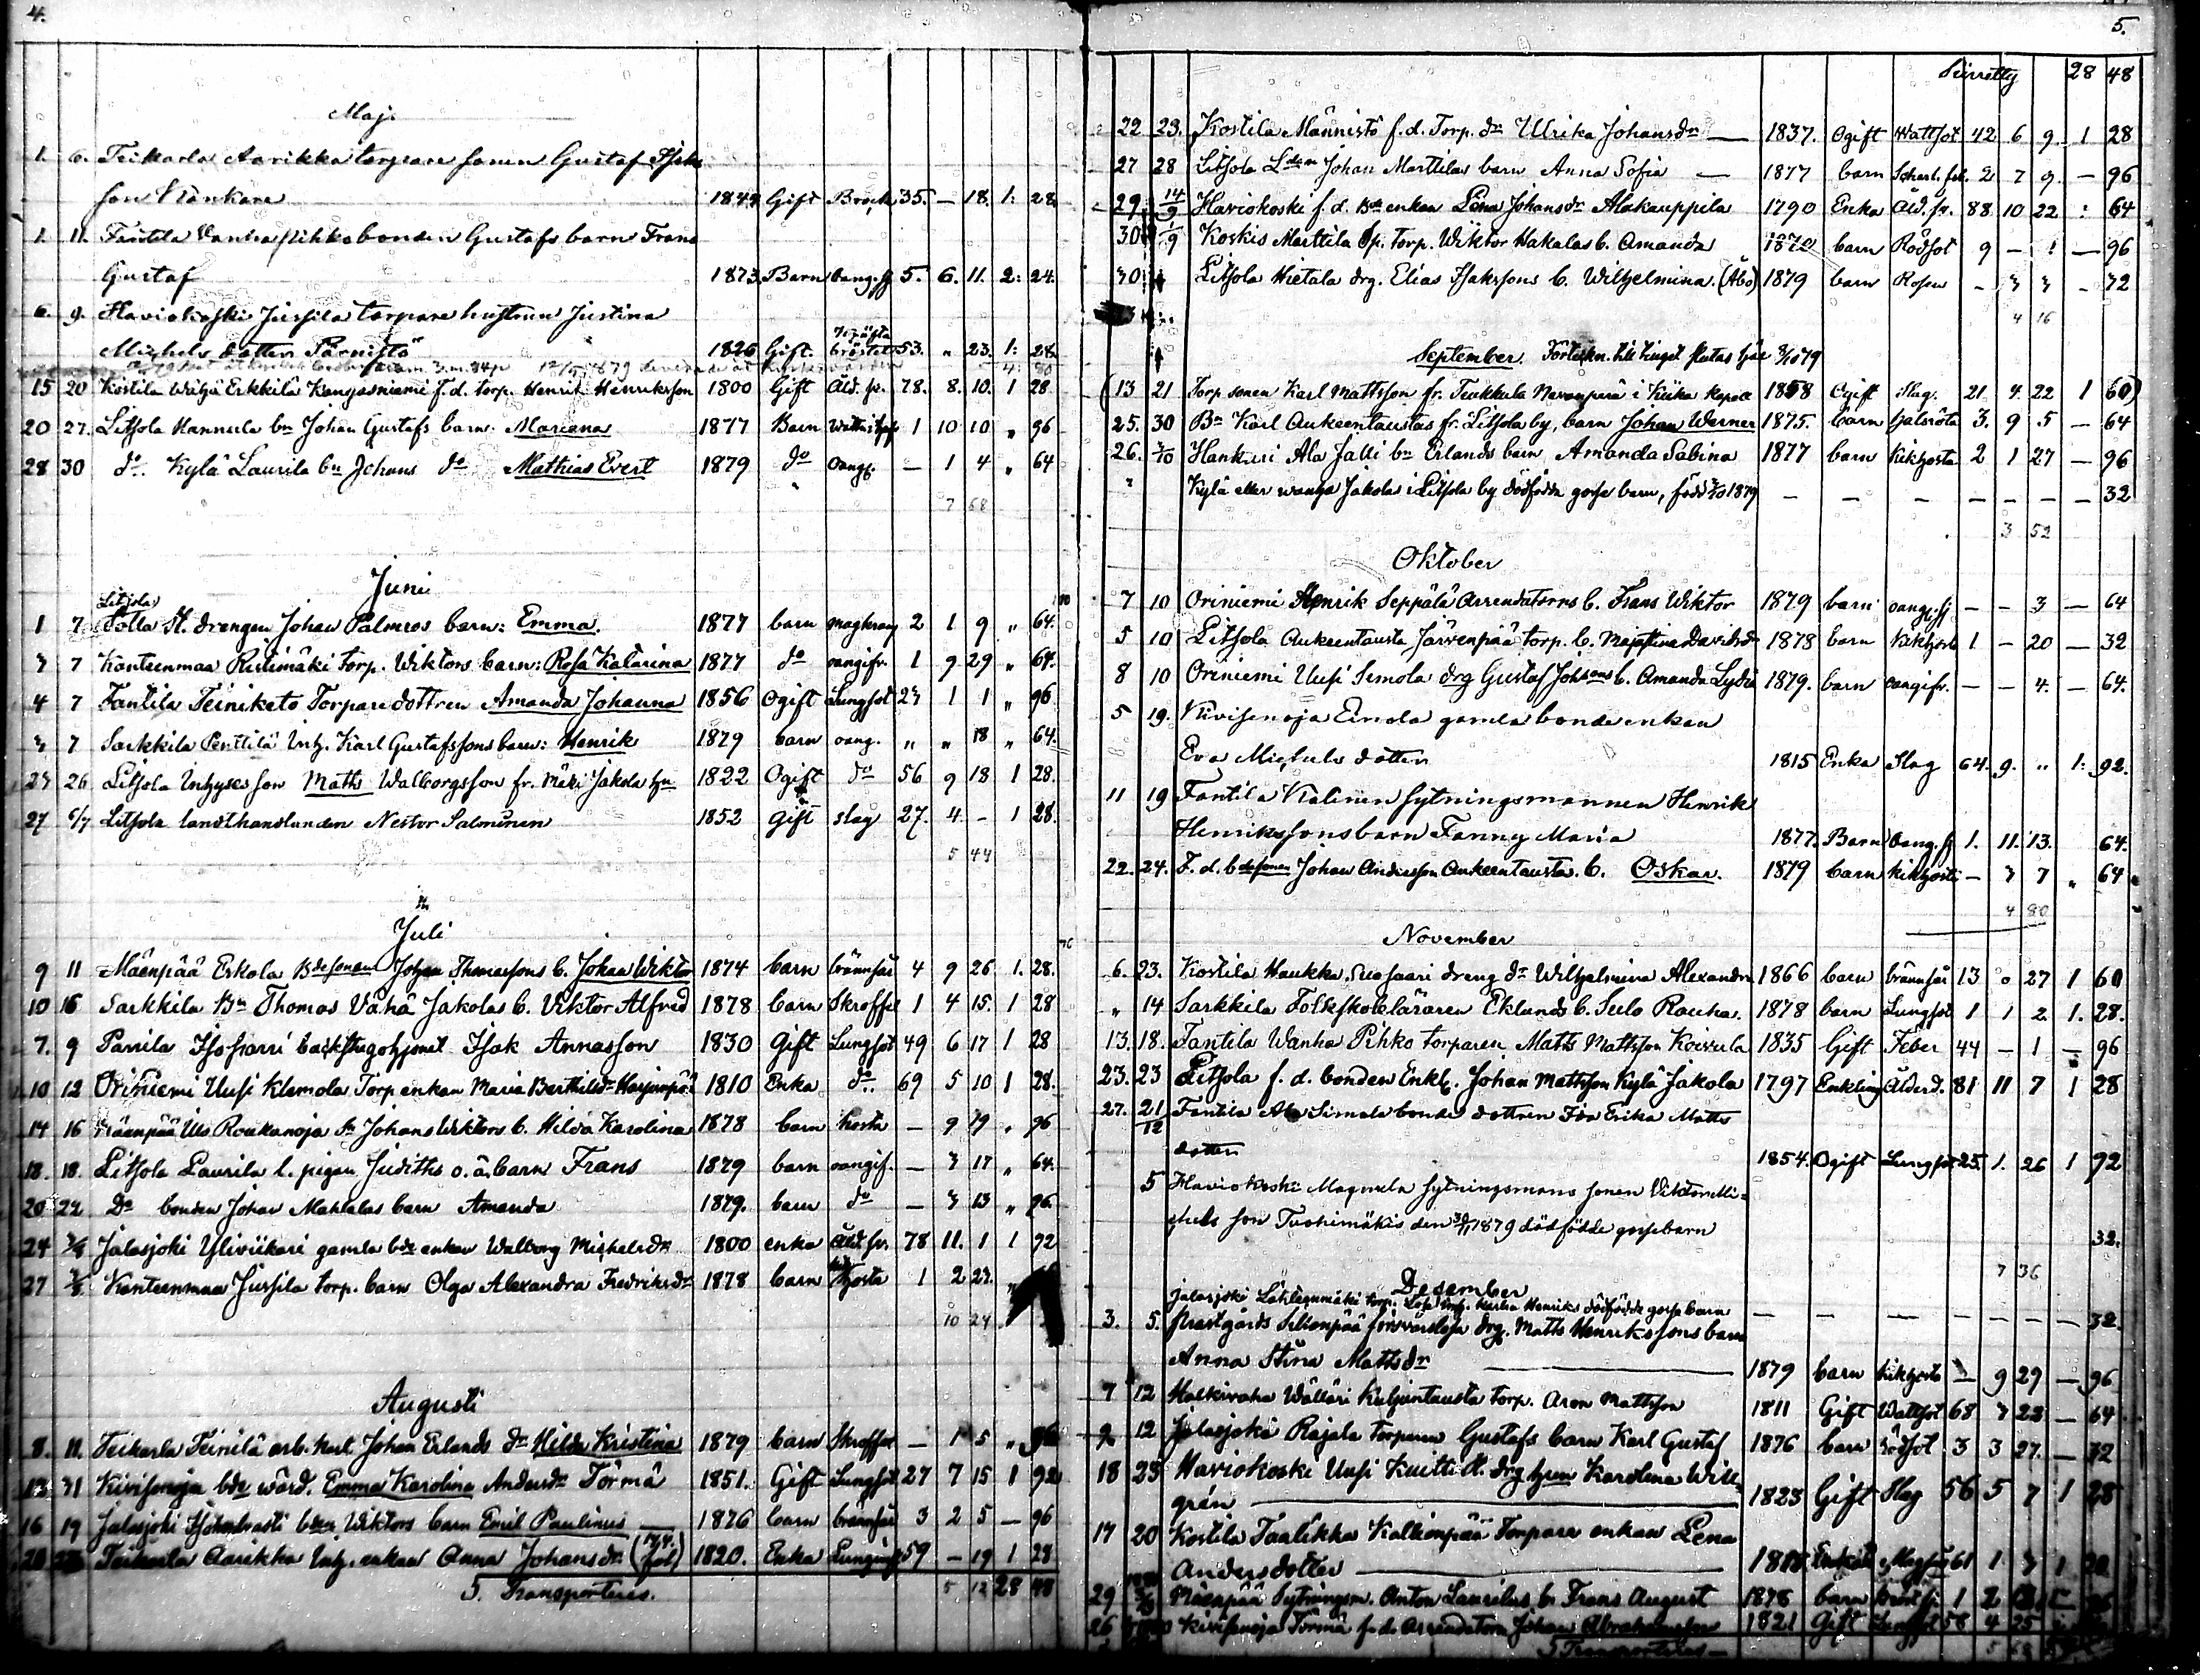 4.
Maj.
1. 6. Teikarla Aarikka torpare sonen Gustaf Isaks
son Stånkare 1844 Gift Bröstk 35. — 18. 1: 28
1. 11. Fantila Vanha Pihko bonden Gustafs barn Frans
Gustaf 1873. Barn oang. sj 5. 6. 11. 2: 24.
6. 9. Haviokoski Jussila torpare hustrun Justina
Michels dotter Pärnistö 1826 Gift. 53. " 23. 1: 28
15 20 Kostila Wähä Erkkilä Kangasniemi f. d. torp. Henrik Henriksson 1800 Gift Åld. sv. 78. 8. 10. 1 28
20 27. Litsola Hannula bn Johan Gustafs barn: Mariana 1877 Barn 1 10 10 " 96
28 30 do. Kylä Laurila bn Johans do Mathias Evert 1879 do oangf. — 1 4 " 64
7 68
Juni
Litsola
1 7 Tolla St. drengen Johan Palmros barn: Emma. 1877 barn magkramp 2 1 9 " 64.
3 7 Kanteenmaa Riilimäki torp. Wiktors barn: Rosa Katarina 1877 do oangifv. 1 9 29 " 64.
4 7 Fantila Teiniketo Torpare dottren Amanda Johanna 1856 Ogift Lungsot 23 1 1 " 96
3 7 Sarkkila Penttilä Inh. Karl Gustafssons barn: Henrik 1879 barn oang. " " 18 " 64.
23 26 Litsola Inhyses son Matts Walborgsson fr. Mäki Jakola hn 1822 Ogift do 56 9 18 1 28.
27 6/7 Litsola landthandlanden Nestor Salminen 1852 gift slag 27. 4. - 1 28.
5 44
Juli
9 11 Mäenpää Eskola Bdesonen Johan Thomassons b. Johan Wiktor 1874 barn brännsår 4 9 26 1. 28.
10 16 Sarkkila Bn Thomas Vähä Jakolas b. Viktor Alfred 1878 barn Skroffel 1 4 15. 1 28
7. 9 Parrila Isak Annasson 1830 Gift Lungsot 49 6 17 1 28
10 12 Oriniemi Uusi Klemola Torp enkan Maria Berthilsdr Harjunpää 1810 Enka do. 69 5 10 1 28.
14 16 Mäenpää Uus Roukanoja Johans Wiktors b. Hilda Karolina 1878 barn hosta — 9 19 " 96
18. 18. Litsola Laurila l. pigan Judiths o. ä. barn Frans 1879 barn oangif. — 3 17 " 64.
20 22 Do bonden Johan Mahlalas barn Amanda 1879. barn do — 3 13 " 96.
24 3/8 Jalasjoki Yliviikari gamla bde enkan Walborg Michelsdr 1800 enka åld. sv. 78 11. 1 1 92
27 3/8 Kanteenmaa Jussila torp. barn Olga Alexandra Fredriksdr 1878 barn kikhosta 1 2 23.
10 24
Augusti
8. 11. Teikarla Teinilä arb. karl Johan Erlands dr Hilda Kristina 1879 barn Skroffel — 1 5 " 96
13 31 Kivisenoja bde wärd. Emma Karolina Andersdr Törmä 1851. Gift Lungsot 27 7 15 1 92
16 19 Jalasjoki bden Wiktors barn Emil Paulinus 1876 barn brännsår 3 2 5 — 96
Teikarla Aarikka Inh. enkan Anna Johansdr 1820. Enka 59 — 19 1 28
S. Transporteras. 5 12 28 48
5.
Siirretty 28 48
22 23. Kostila Männistö f. d. Torp. dr Ulrika Johansdr — 1837. Ogift Wattsot 42 6 9. 1 28
27 28 Litsola Johan Marttilas barn Anna Sofia — 1877 barn Scharl. feb. 2 7 9. — 96
29. 14/9 Haviokoski f. d. Bde enkan Lena Johansdr Alakauppila 1790 Enka Åld. sv. 88. 10 22 : 64
30 1/9 Koskis Marttila Sp. torp. Wiktor Hakalas b. Amanda 1870 barn Rödsot 9 — ! — 96
30 Litsola Hietala drg. Elias Isakssons b. Wilhelmina. (Åbo) 1879 barn Rosen - 3 3 - 72
4 16
September. Förteckn. till tinget slutas här 3/10 79
(13 21 Torp sonen Karl Mattsson fr. Teukkula Nevanperä i Kiika Kapell 1858 Ogift Slag. 21 4 22 1 60)
25. 30 Bn Karl Aukeentaustas fr. Litsola by, barn Johan Werner 1875. barn halsröta 3. 9 5 — 64
26. 3/10 Hankuri Ala Jalli bn Erlands barn Amanda Sabina 1877 barn kikhosta 2 1 27 — 96
" Kylä eller wanha Jakolas i Litsola by dödfödda gosse barn, född 1879 — — — — — — — 32
3 52
Oktober
7 10 Oriniemi Henrik Seppälä Arrendatorns b. Frans Wiktor 1879 barn oang. sj — — 3 — 64
5 10 Litsola Aukeentausta Järvenpää torp. b. Davidsdr 1878 barn kikhosta 1 — 20 — 32
8 10 Oriniemi Uusi Simola drg Gustaf Johssons b. Amanda Lydia 1879. barn oangifv. — — 4. — 64.
5 19. Kivisenoja Eerola gamla bonde enkan
Eva Michels dotter 1815 Enka Slag 64. 9. " 1: 92.
11 19 Fantila Kalinen sytningsmannen Henrik
Henrikssons barn Fanny Maria 1877. Barn oang. sj 1. 11. 13. 64.
22. 24. F. d. bdesonen Johan Andersson Aukeentausta. b. Oskar. 1879 barn kikhosta — 3 7 " 64
4 80
November
6. 23. Kostila Haukka Suosaari dreng dr Wilhelmina Alexandra 1866 barn brännsår 13 0 27 1 60
" 14 Sarkkila Folkskoleläraren Eklunds b. Sulo Rauha. 1878 barn Lungsot 1 1 2 1. 28.
13. 18. Fantila Wanha Pihko torparen Matts Mattsson Koivula 1835 Gift Feber 44 — 1 — 96
23. 23 Litsola f. d. bonden Enkl. Johan Mattsson Kylä Jakola 1797 Enkling Ålderd. 81 11 7 1 28
27. 21/12 Fantila Ala Simola bonde dottren Ida Erika Matts
dotter 1854. Ogift Lungsot 25. 1. 26 1 92
5 Haviokoski Magnula sytningsmans sonen Viktor Mi=
chels son Tuohimäkis den 1879 dödfödde gossebarn 32.
7 36
Desember
Jalasjoki dödfödde gosse barn — — — — — — — 32.
3. 5. Prestgårds drg. Matts Henrikssons barn
Anna Stina Mattsdr — 1879 barn kikhosta — 9 29 — 96
7 12 Halkivaha Wälläri Kuljuntausta torp. Aron Mattsson 1811 Gift Wattsot 68 3 23 — 64
9 12 Jalasjoki Rajala Torparen Gustafs barn Karl Gustaf 1876 barn rödsot 3 3 27. — 32
18 23 Haviokoski Uusi Kuitti St. drg hun Karolina Will=
grén — 1823 Gift Slag 56 5 7 1 28
17 20 Kostila Taalikka Kalkonpää Torpare enkan Lena
Andersdotter — 61 1 3 1
29 Mäenpää Sytningsm. Anton Laurilas b. Frans August 1878 barn 1 2
26 Kivisenoja Törmä f. d. Arrendatorn Johan Abrahamsson 1821 Gift Lungsot 58 4 25